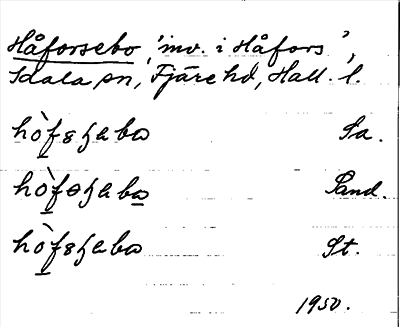 Håforsebo, 'inv. i Håfors',
Idala sn, Fjäre hd, Hall. l.
hòfsꞓabo Sa.
hòfsꞓabo Sand.
hòfsꞓabo St.
1950.